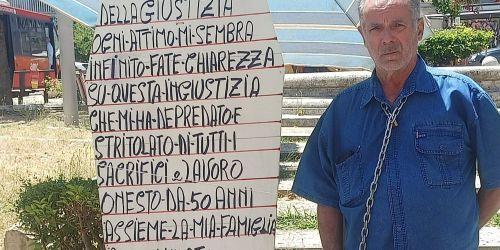 DELLA GIUSTIZIA
OGNI ATTIMO MI SEMBRA
INFINITO FATE CHIAREZZA
SU QUESTA INGIUSTIZIA
CHE MI HA DEPREDATO E
STRITOLATO DI TUTTI I
SACRIFICI e LAVORO
ONESTO DA 50 ANNI
ASSIEME LA MIA FAMIGLIA